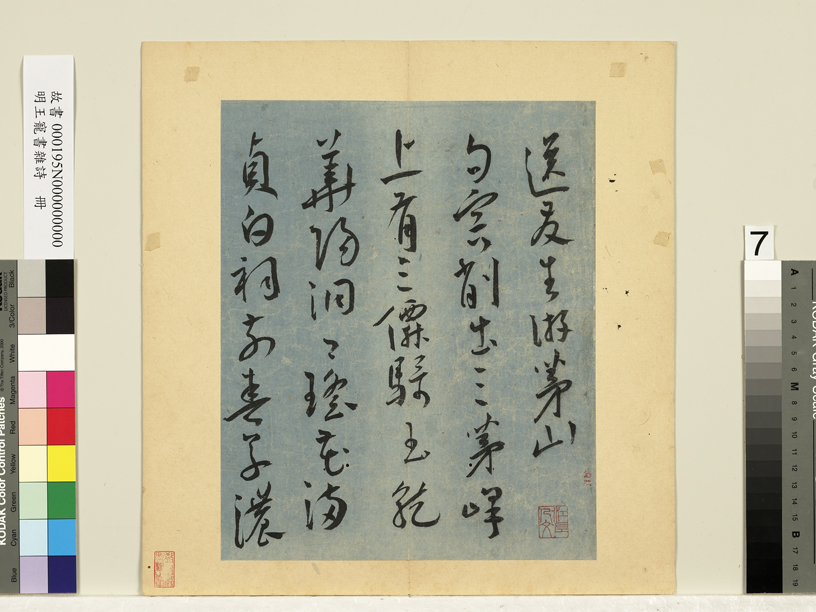 送友生游茅山
句容削出三茅峰
上有三僊騎玉龍
華陽洞口瑤花滿
貞白祠前春草濃
故書 000195N000000000
明王寵書雜詩 冊
7
KODAK Color Control Patches
Blue
Cyan
Green
Yellow
Red
Magenta
White
3/Color
Black
A 1 2 3 4 5 6 M 8 9 10 11 12 13 14 15 B 17 18 19